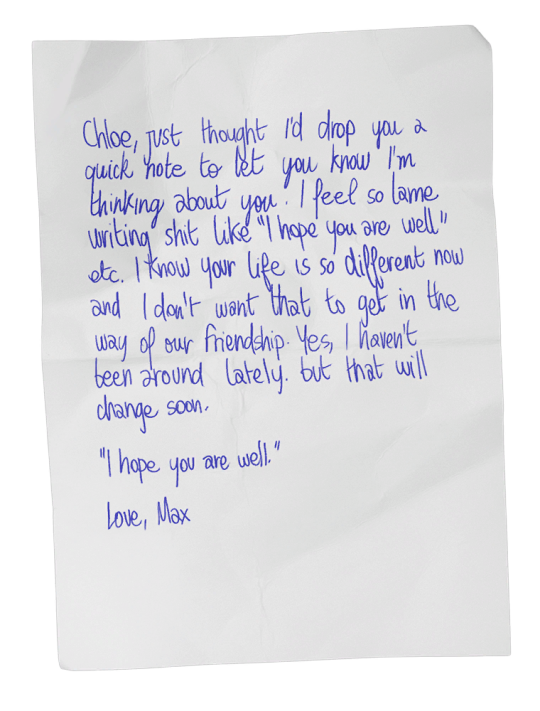 Chloe, just thought I'd drop you a
quick note to let you know I'm
thinking about you. I feel so lame
writing shit like "I hope you are well"
etc. I know your life is so different now
and I don't want that to get in the
way of our friendship. Yes, I haven't
been around lately. but that will
change soon.
"I hope you are well."
Love, Max